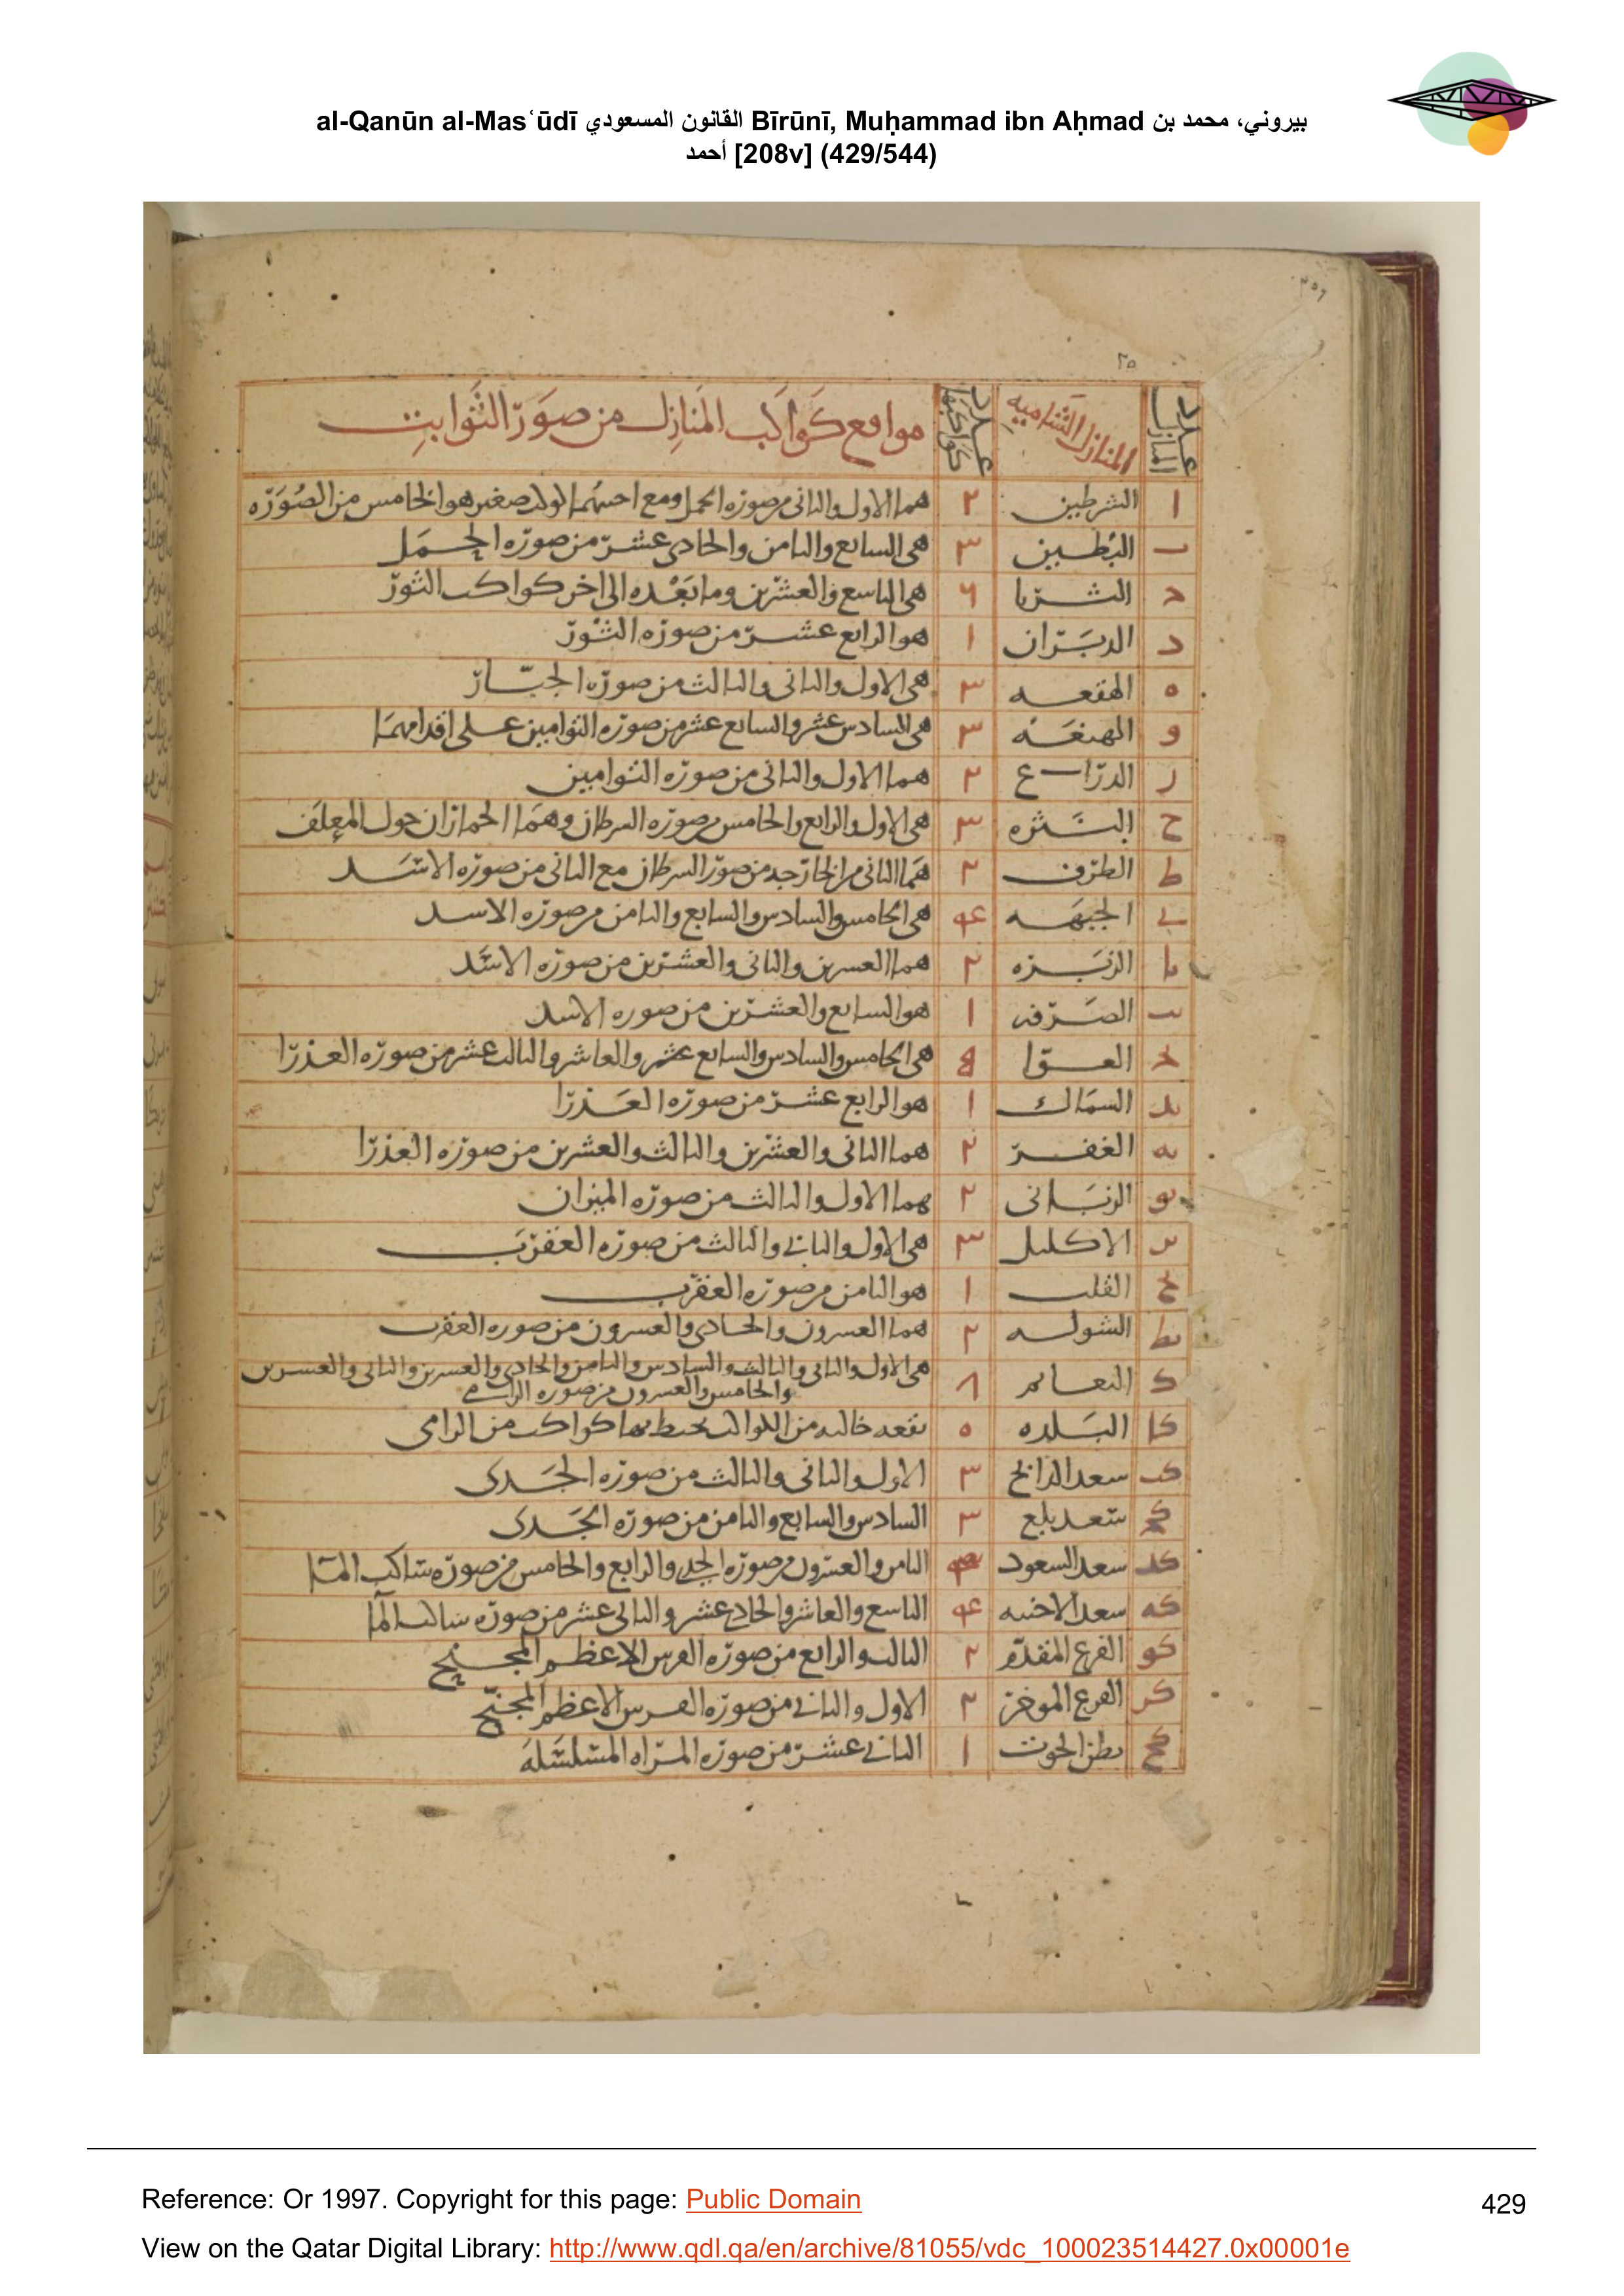 al-Qanūn al-Masʿūdī القانون المسعودي Bīrūnī, Muḥammad ibn Aḥmad بيروني، محمد بن
أحمد [208v] (429/544)
٢٥
عدد المنازل المنازل الشاميه عدد كواكبها مواقع كَوَاكب المنَازِل من صوَر الثَّوابتِ
ا الشرطين ٢ هما الاول والثانى من صوره الحمل ومع احدهما كوكب صغير هو الخامس من الصُوَره
ب البُطين ٣ هى السابع والثامن والحادى عشر من صوره الحمَل
ح الثريا ٦ هى التاسع والعشرين وما بَعْده الى اخر كواكب الثور
د الدبَران ١ هو الرابع عشر من صوره الثَوْر
ه الهقعه ٣ هى الاول والثانى والثالث من صوره الجبّار
و الهنعَه ٣ هى السادس عشر والسابع عشر من صوره التوامين على اقدامهمَا
ز الذراع ٢ هما الاول والثانى من صوره التوامين
ح النثره ٣ هى الاول والرابع والخامس من صوره السرطان وهمَا الحماران حول المعلَف
ط الطرف ٢ همَا الثانى من الخارجه من صور السرطان مع الثانى من صوره الاسَد
ى الجبهَه ۴ هى الخامس والسادس والسابع والثامن من صوره الاسد
يا الزبَره ٢ هما العسرين والثانى والعشرين من صوره الاسَد
يب الصَرفه ١ هو السابع والعشرين من صوره الاسد
يح العوّا ۵ هى الخامس والسادس والسابع عشر والعاشر والثالث عشر من صوره العذرا
يد السمَاك ١ هو الرابع عشر من صوره العَذرا
يه الغفر ٢ هما الثانى والعشرين والثالث والعشرين من صوره العذرا
يو الزبَانى ٢ هما الاول والثالث من صوره الميزان
يز الاكليل ٣ هى الاول والثانى والثالث من صوره العقرَب
يح القلب ١ هو الثامن من صوره العقرب
يط الشوله ٢ هما العسرون والحادى والعسرون من صوره العقرب
ك النعايم ٨ هى الاول والثانى والثالث والسادس والثامن والحادى والعسرين والثانى والعسرين
والخامس والعسرون من صوره الرامى
كا البَلده ٥ بقعه خاليه من الكواكب يحيط بها كواكب من الرامى
كب سعد الذابح ٣ الاول والثانى والثالث من صوره الجَدى
كح سَعد بلع ٣ السادس والسابع والثامن من صوره الجَدى
كد سعد السعود الثامن والعشرون من صوره الجدى والرابع والخامس من صوره ساكب المآ
كه سعد الاخبيه ۴ التاسع والعاشر والحادى عشر والثانى عشر من صوره ساكب المآ
كو الفرع المقدّم ٢ الثالث والرابع من صوره الفرس الاعظم المجنح
كز الفرع الموخر ٢ الاول والثانى من صوره الفرس الاعظم المجنّح
كح بطن الحوت ١ الثانى عشر من صوره المراه المسَلسَله
Reference: Or 1997. Copyright for this page: Public Domain
429
View on the Qatar Digital Library: http://www.qdl.qa/en/archive/81055/vdc_100023514427.0x00001e